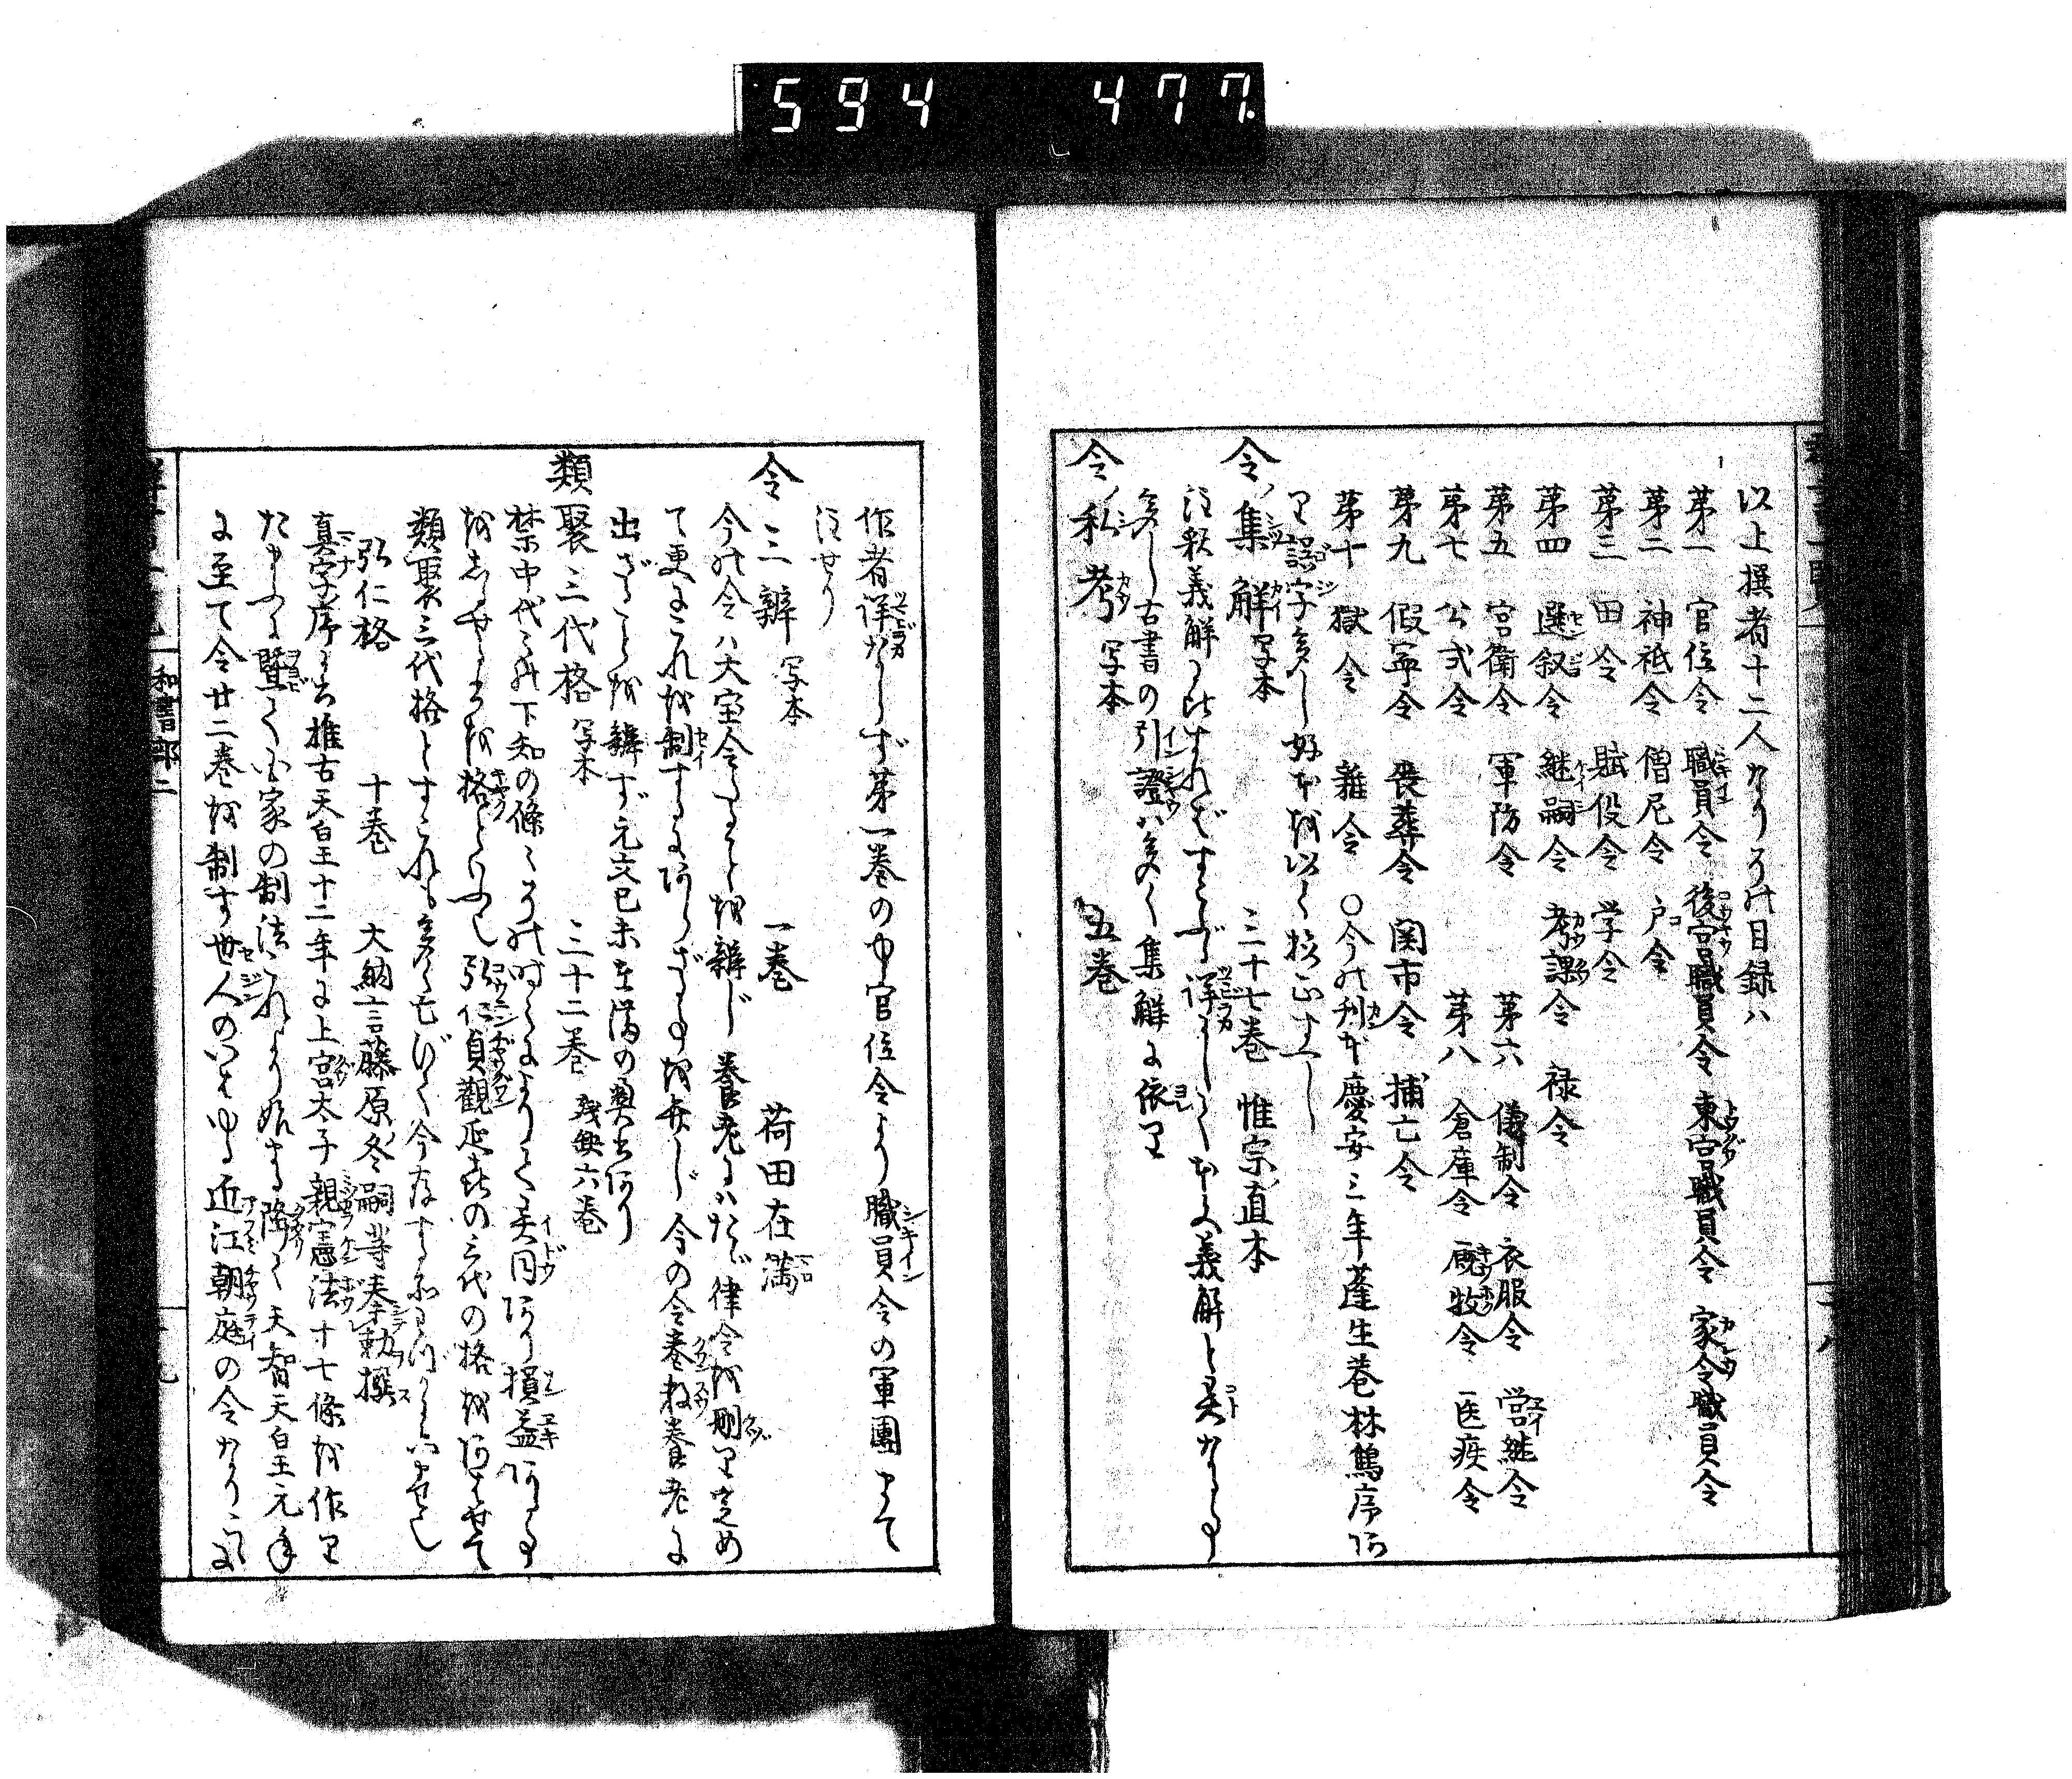 594 477
以上撰者十二人なりその目録ハ
第一 官位令 職員令 後宮職員令 東宮職員令 家令職員令
第二 神祇令 僧尼令 戸令
第三 田令 賦役令 学令
第四 選叙令 継嗣令 考課令 禄令
第五 宮衛令 軍防令 第六 儀制令 衣服令 営繕令
第七 公式令 第八 倉庫令 厩牧令 医疾令
第九 假寧令 喪葬令 関市令 捕亡令
第十 獄令 雑令 ○今の刊本慶安三年蓬生巷林鵞序あ
り誤字多し好本を以て校正すべし
令ノ集解 写本 三十七巻 惟宗ノ直本
注釈義解に比すればすこぶる詳にして本文義解と異なる事
多し古書の引證ハ多く集解に依り
令ノ私考 写本 五巻
作者詳ならず第一巻の中官位令より職員令の軍團まて
注せり
令三辨 写本 一巻 荷田在満
今の令ハ大宝令なることを辨じ養老にハたゞ律令を刪り定め
て更にこれを制するにあらざる事を弁じ今の令巻数養老に
出ざることを辨ず元文己未在満の奥書あり
類聚三代格 写本 三十二巻 残缺六巻
禁中代々の下知の條々その時々によりて異同あり損益ある事
をしるせるを格といふ弘仁貞觀延喜の三代の格をあはせて
類聚三代格とすこれも多く亡びて今存する所わづかに
弘仁格 十巻 大納言藤原ノ冬嗣等奉勅撰
真字序に云推古天皇十二年に上宮太子親憲法十七條を作り
たまふ曁て国家の制法これより始まる降て天智天皇元年
に至て令廿二巻を制す世人のいはゆる近江朝庭の令なりこゝに
和書部二